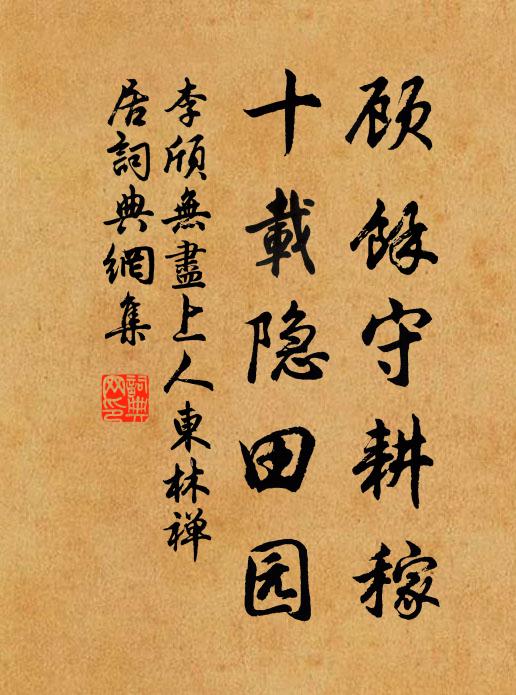 顾馀守耕稼
十載隐田园
李颀無盡上人東林禅
居詞典網集
詞典网印